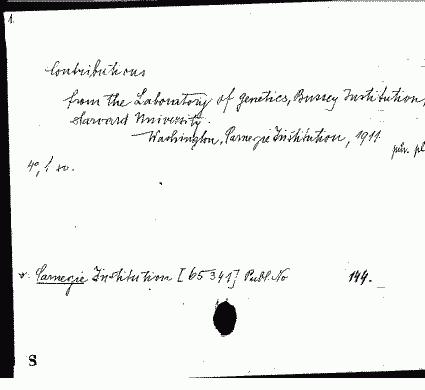 1.
Contributions
from the Laboratory of genetics, Bussey Institution,
Harvard University.
Washington, Carnegie Institution, 1911
pův. pl
4°, 1 sv.
v. Carnegie Institution [65341] Publ. No 144.
S